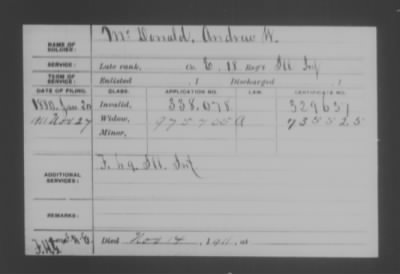 NAME OF SOLDIER: McDonald, Andrew W.
SERVICE: Late rank, Co. E, 18 Reg't Ill Inf
TERM OF SERVICE: Enlisted , 1 Discharged , 1
DATE OF FILING. CLASS. APPLICATION NO. LAW. CERTIFICATE NO.
1880 Jan 20 Invalid, 338.078 329651
1911 Nov 27 Widow, 975705 A 735525
Minor,
ADDITIONAL SERVICES: F. 49 Ill. Inf
REMARKS:
Died Nov 14, 1911, at